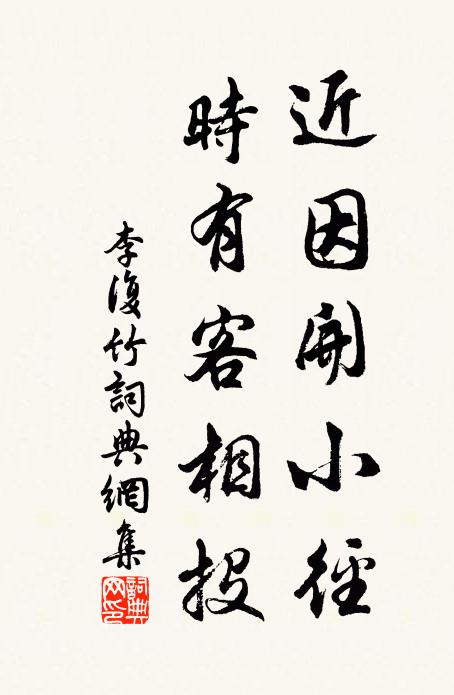 近因開小徑
時有客相投
李復竹詞典網集
詞典
网印